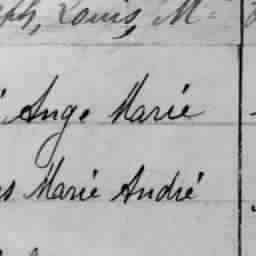 Louis, M
Ange Marie
Marie André